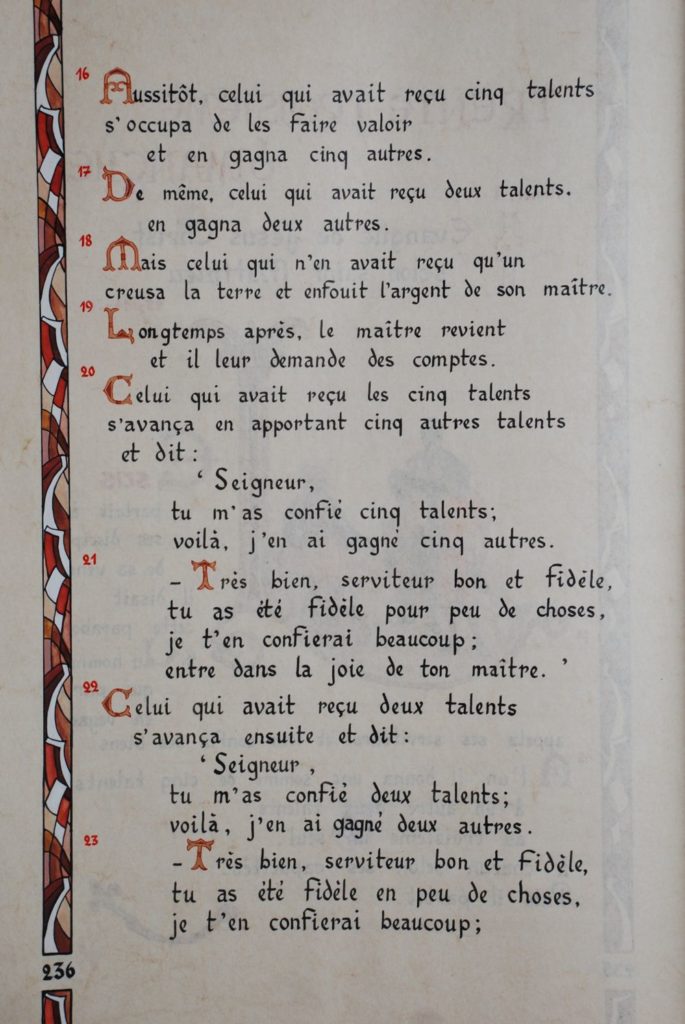 16 Aussitôt, celui qui avait reçu cinq talents
s'occupa de les faire valoir
et en gagna cinq autres.
17 De même, celui qui avait reçu deux talents.
en gagna deux autres.
18 Mais celui qui n'en avait reçu qu'un
creusa la terre et enfouit l'argent de son maître.
19 Longtemps après, le maître revient
et il leur demande des comptes.
20 Celui qui avait reçu les cinq talents
s'avança en apportant cinq autres talents
et dit :
‘ Seigneur,
tu m'as confié cinq talents;
voilà, j'en ai gagné cinq autres.
21 – Très bien, serviteur bon et fidèle,
tu as été fidèle pour peu de choses,
je t'en confierai beaucoup ;
entre dans la joie de ton maître. ’
22 Celui qui avait reçu deux talents
s'avança ensuite et dit :
‘ Seigneur ,
tu m'as confié deux talents;
voilà, j'en ai gagné deux autres.
23 – Très bien, serviteur bon et fidèle,
tu as été fidèle en peu de choses,
je t'en confierai beaucoup;
236